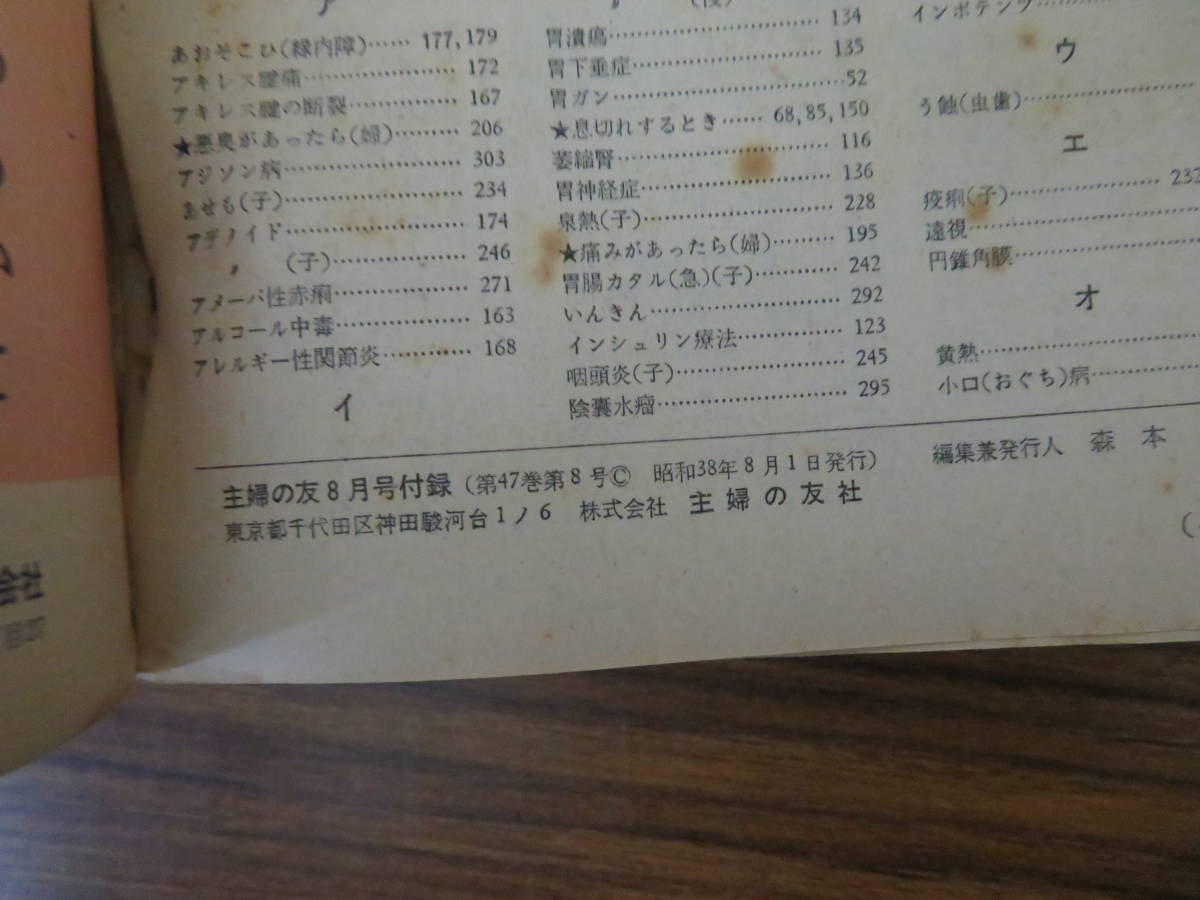 ア
あおそこひ(緑内障)…… 177,179
アキレス腱痛…………… 172
アキレス腱の断裂………… 167
★悪臭があったら(婦)……… 206
アジソン病……………… 303
あせも(子)……………… 234
アデノイド……………… 174
〃 (子)…………… 246
アメーバ性赤痢…………… 271
アルコール中毒…………… 163
アレルギー性関節炎……… 168
イ
胃潰瘍…………………… 134
胃下垂症………………… 135
胃ガン……………………52
★息切れするとき…… 68,85,150
萎縮腎…………………… 116
胃神経症………………… 136
泉熱(子)………………… 228
★痛みがあったら(婦)……… 195
胃腸カタル(急)(子)……… 242
いんきん………………… 292
インシュリン療法………… 123
咽頭炎(子)……………… 245
陰嚢水瘤………………… 295
インポテンツ……
ウ
う蝕(虫歯)……………
エ
疫痢(子)…………… 232
遠視………………
円錐角膜……………
オ
黄熱………………
小口(おぐち)病…………
主婦の友8月号付録(第47巻第8号© 昭和38年8月1日発行) 編集兼発行人 森本
東京都千代田区神田駿河台1ノ6 株式会社 主婦の友社
(